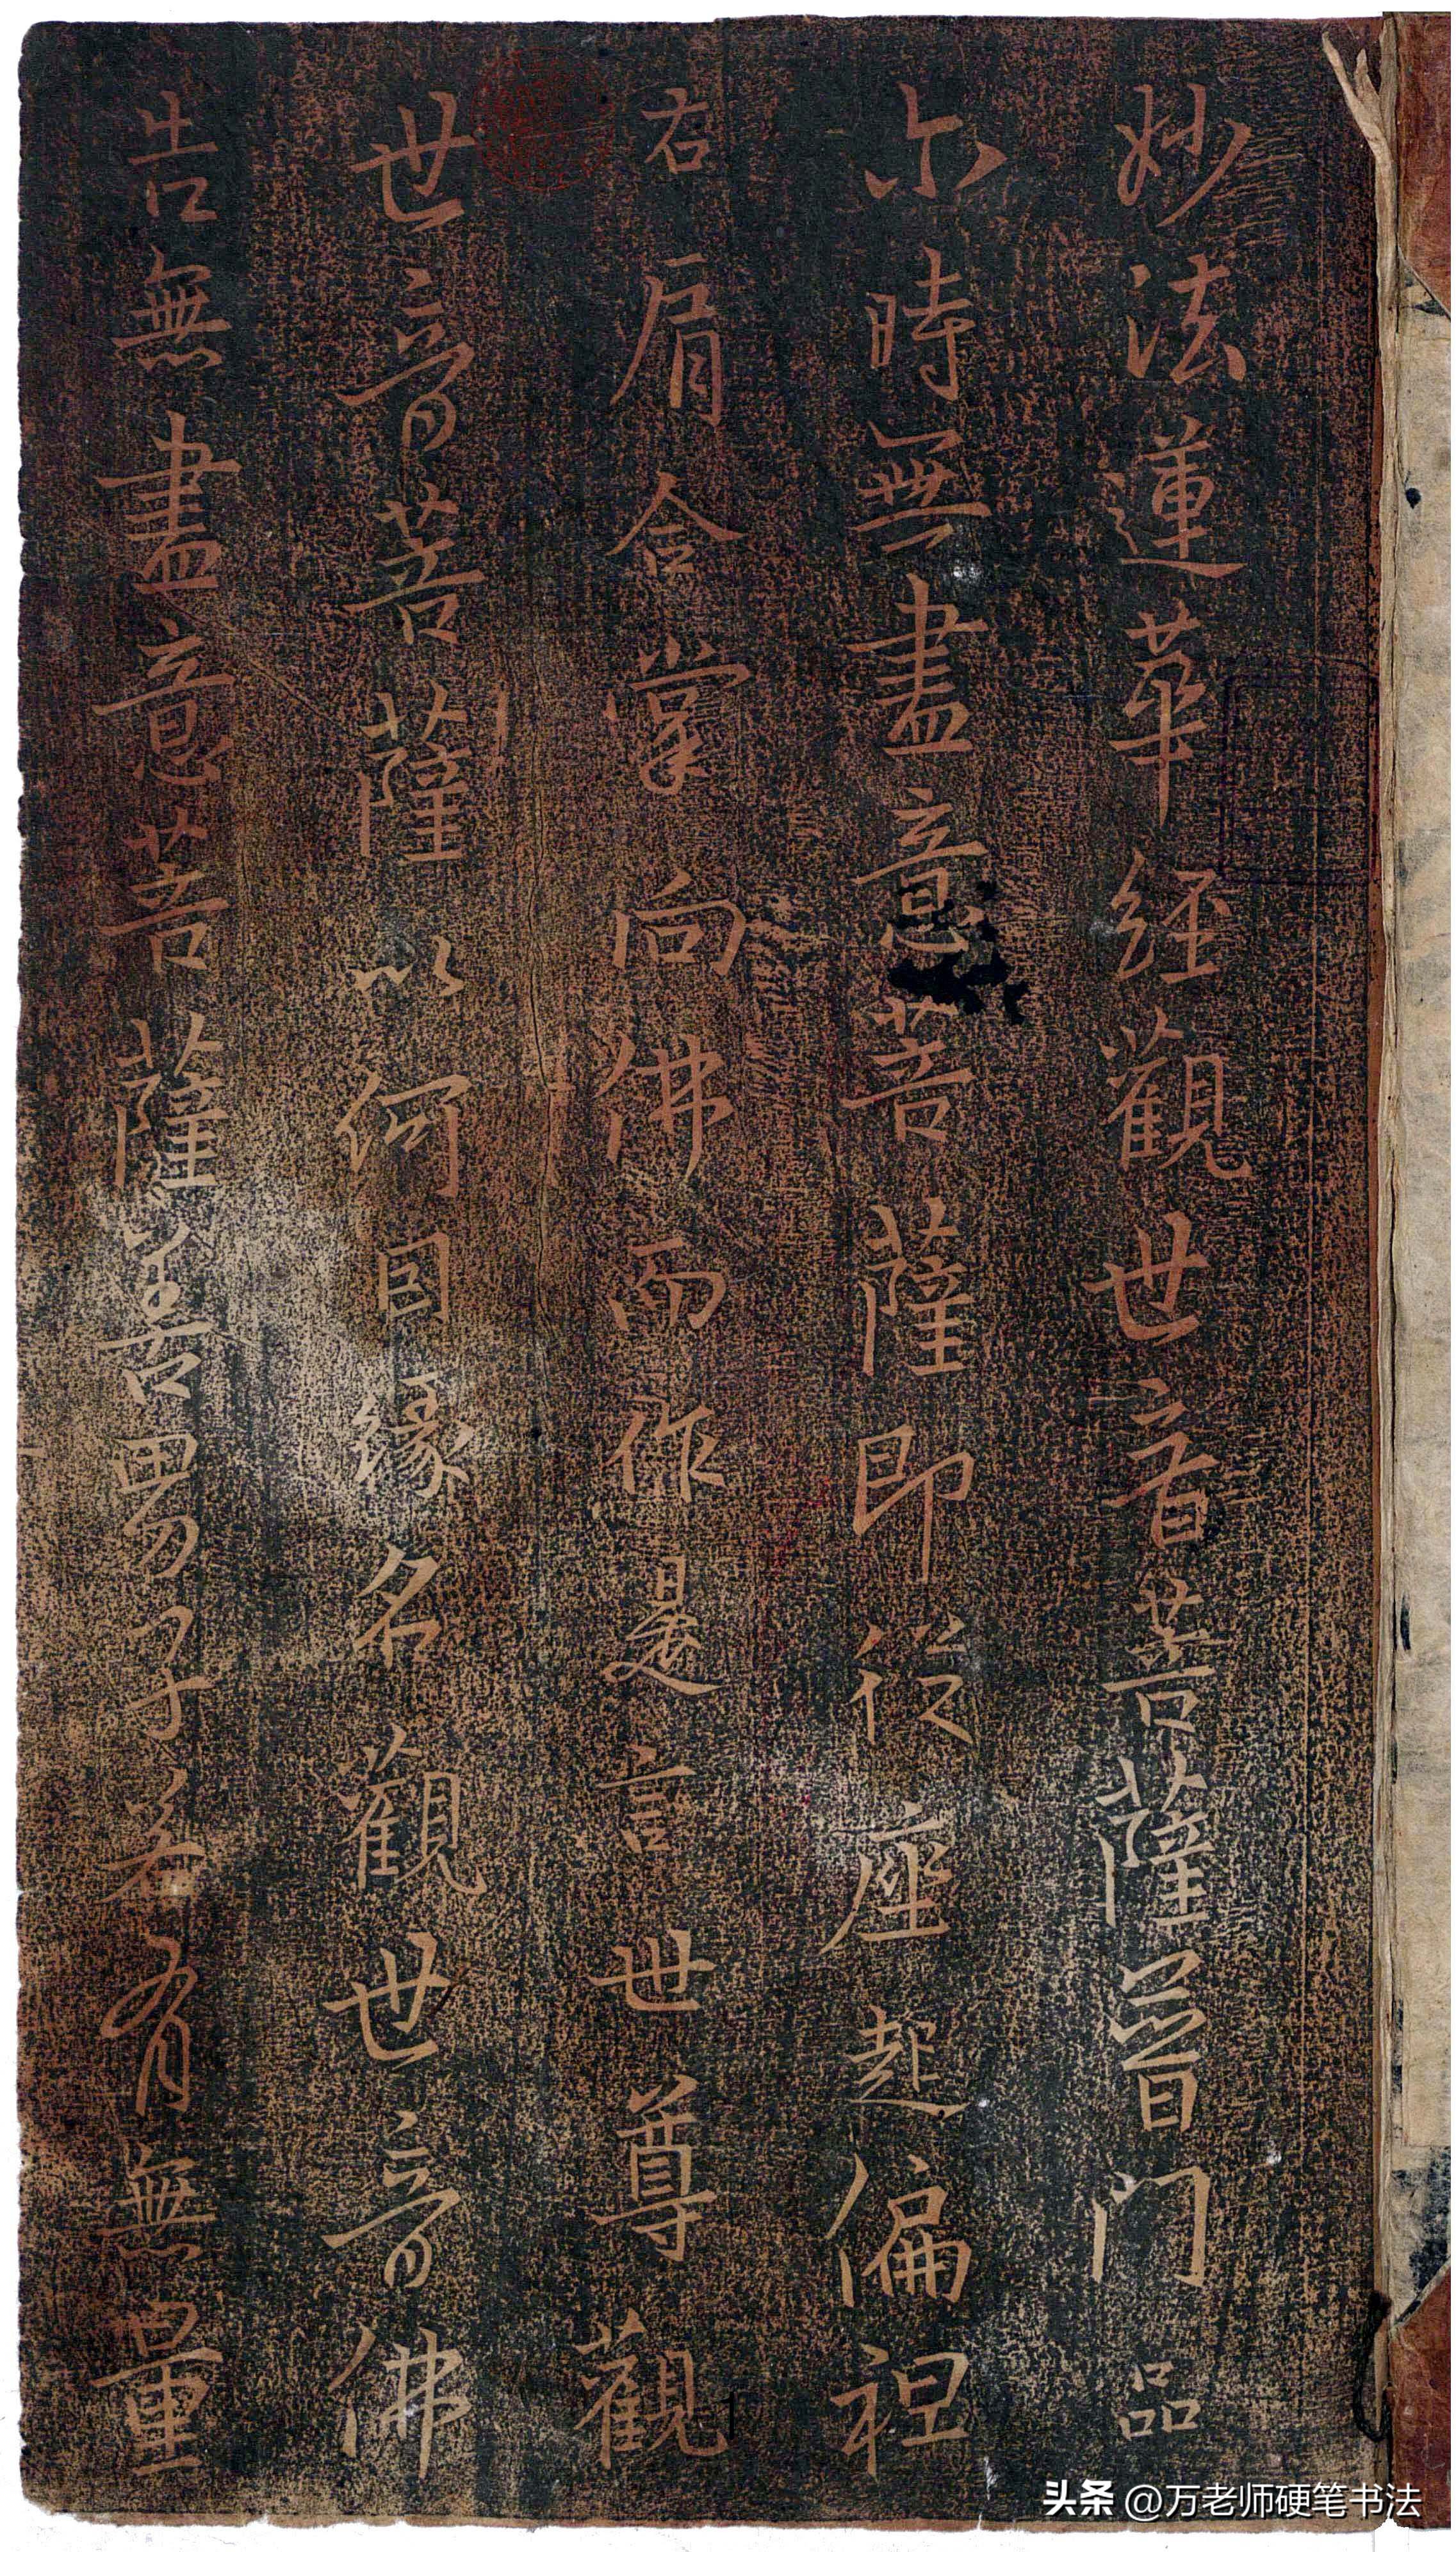 妙法蓮華經觀世音菩薩普門品
尒時無盡意菩薩即從座起偏袒
右肩合掌向佛而作是言世尊觀
世音菩薩以何因緣名觀世音佛
告無盡意菩薩善男子若有無量
头条 @万老师硬笔书法